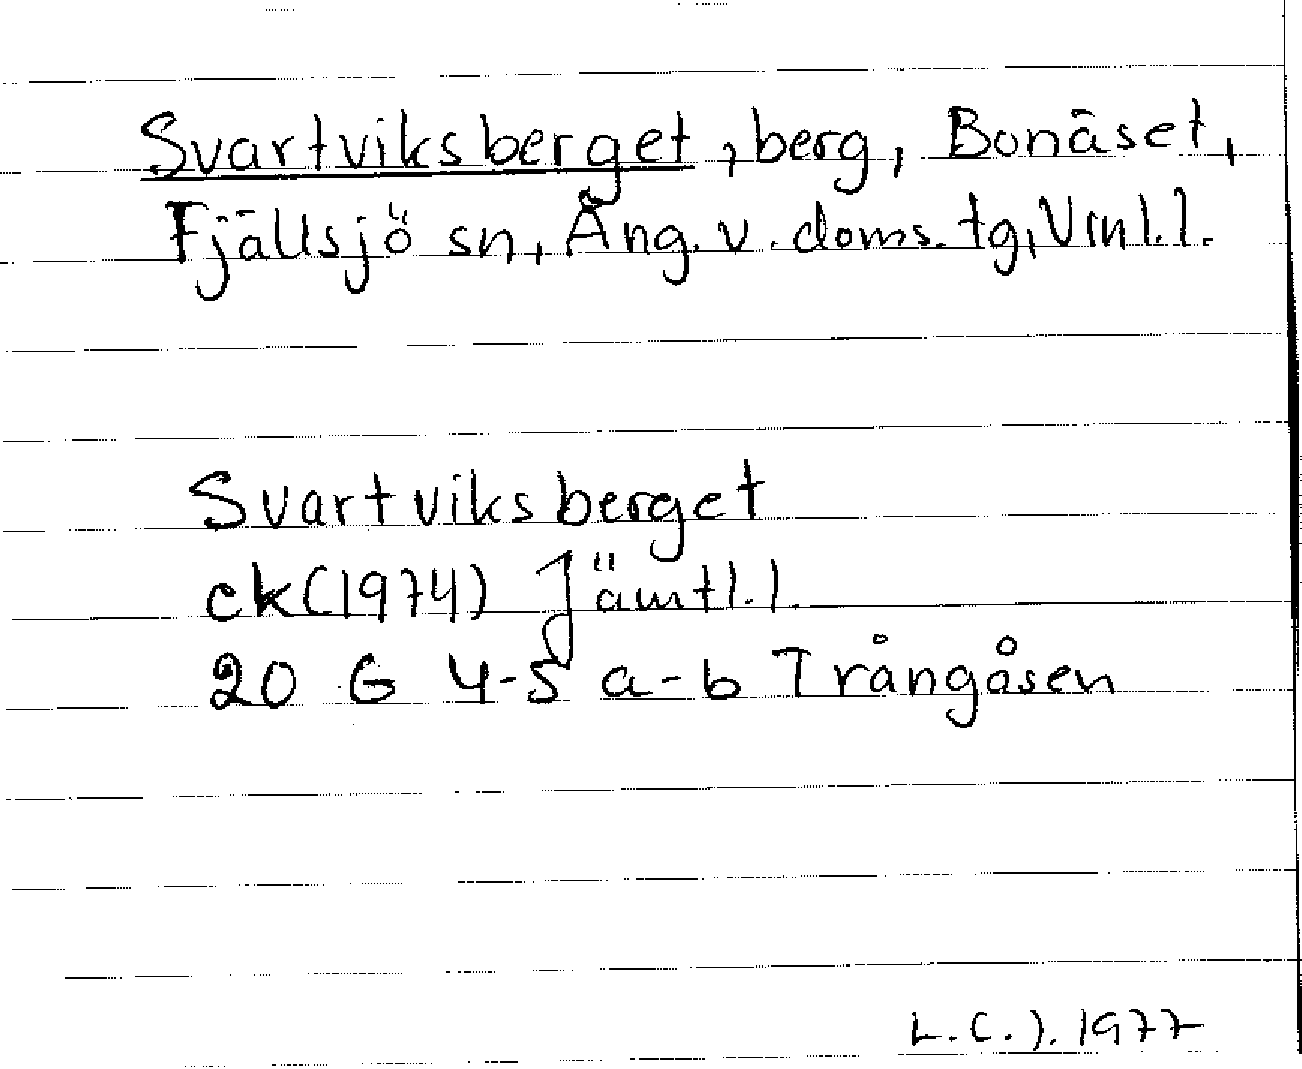 Svartviksberget, berg, Bonäset,
Fjällsjö sn, Ång. v. doms. tg, Vnl.l.
Svartviksberget
ck(1974) Jämtl.l.
20 G 4-5 a-b Trångåsen
L.C.J. 1977